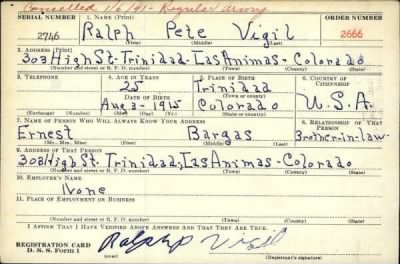 Cancelled 1/6/41 - Regular Army
SERIAL NUMBER 1. NAME (Print) ORDER NUMBER
2746 Ralph Pete Vigil 2666
(First) (Middle) (Last)
2. ADDRESS (Print)
303 High St. Trinidad. Las Animas - Colorado
(Number and street or R. F. D. number) (Town) (County) (State)
3. TELEPHONE 4. AGE IN YEARS 5. PLACE OF BIRTH 6. COUNTRY OF CITIZENSHIP
25 Trinidad
DATE OF BIRTH (Town or county)
Aug 3 - 1915 Colorado U.S.A.
(Exchange) (Number) (Mo.) (Day) (Yr.) (State or country)
7. NAME OF PERSON WHO WILL ALWAYS KNOW YOUR ADDRESS 8. RELATIONSHIP OF THAT PERSON
Ernest Bargas Brother-in-law
(Mr., Mrs., Miss) (First) (Middle) (Last)
9. ADDRESS OF THAT PERSON
303 High St. Trinidad, Las Animas - Colorado
(Number and street or R. F. D. number) (Town) (County) (State)
10. EMPLOYER'S NAME
None
11. PLACE OF EMPLOYMENT OR BUSINESS
(Number and street or R. F. D. number) (Town) (County) (State)
I AFFIRM THAT I HAVE VERIFIED ABOVE ANSWERS AND THAT THEY ARE TRUE.
REGISTRATION CARD
D. S. S. Form 1 (over) Ralph P Vigil
(Registrant's signature)